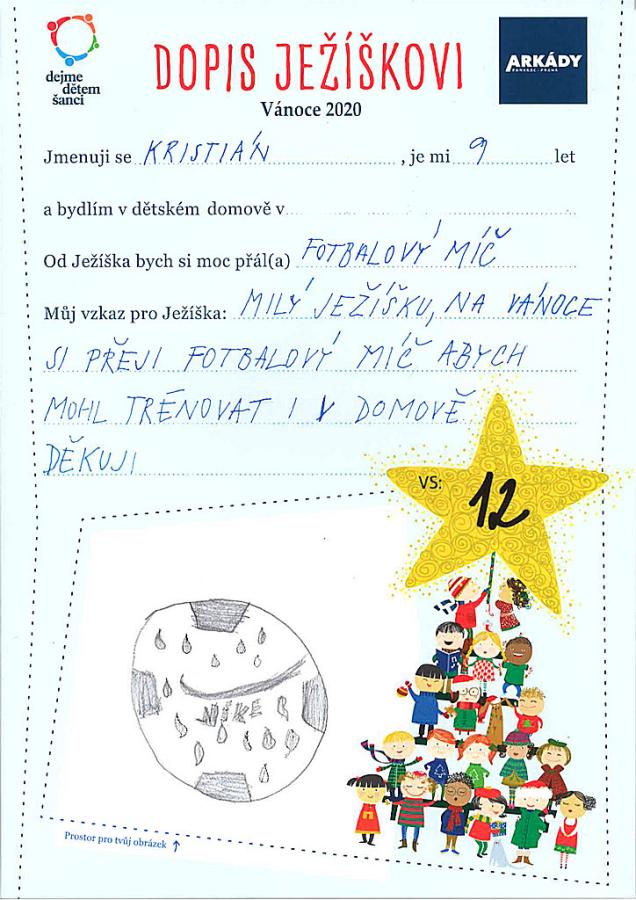 dejme
dětem
šanci
DOPIS JEŽÍŠKOVI
ARKÁDY
PANKRÁC - PRAHA
Vánoce 2020
Jmenuji se KRISTIÁN, je mi 9 let
a bydlím v dětském domově v
Od Ježíška bych si moc přál(a) FOTBALOVÝ MÍČ
Můj vzkaz pro Ježíška: MILÝ JEŽÍŠKU, NA VÁNOCE
SI PŘEJI FOTBALOVÝ MÍČ ABYCH
MOHL TRÉNOVAT I V DOMOVĚ
DĚKUJI
VS: 12
NIKE
Prostor pro tvůj obrázek ↑